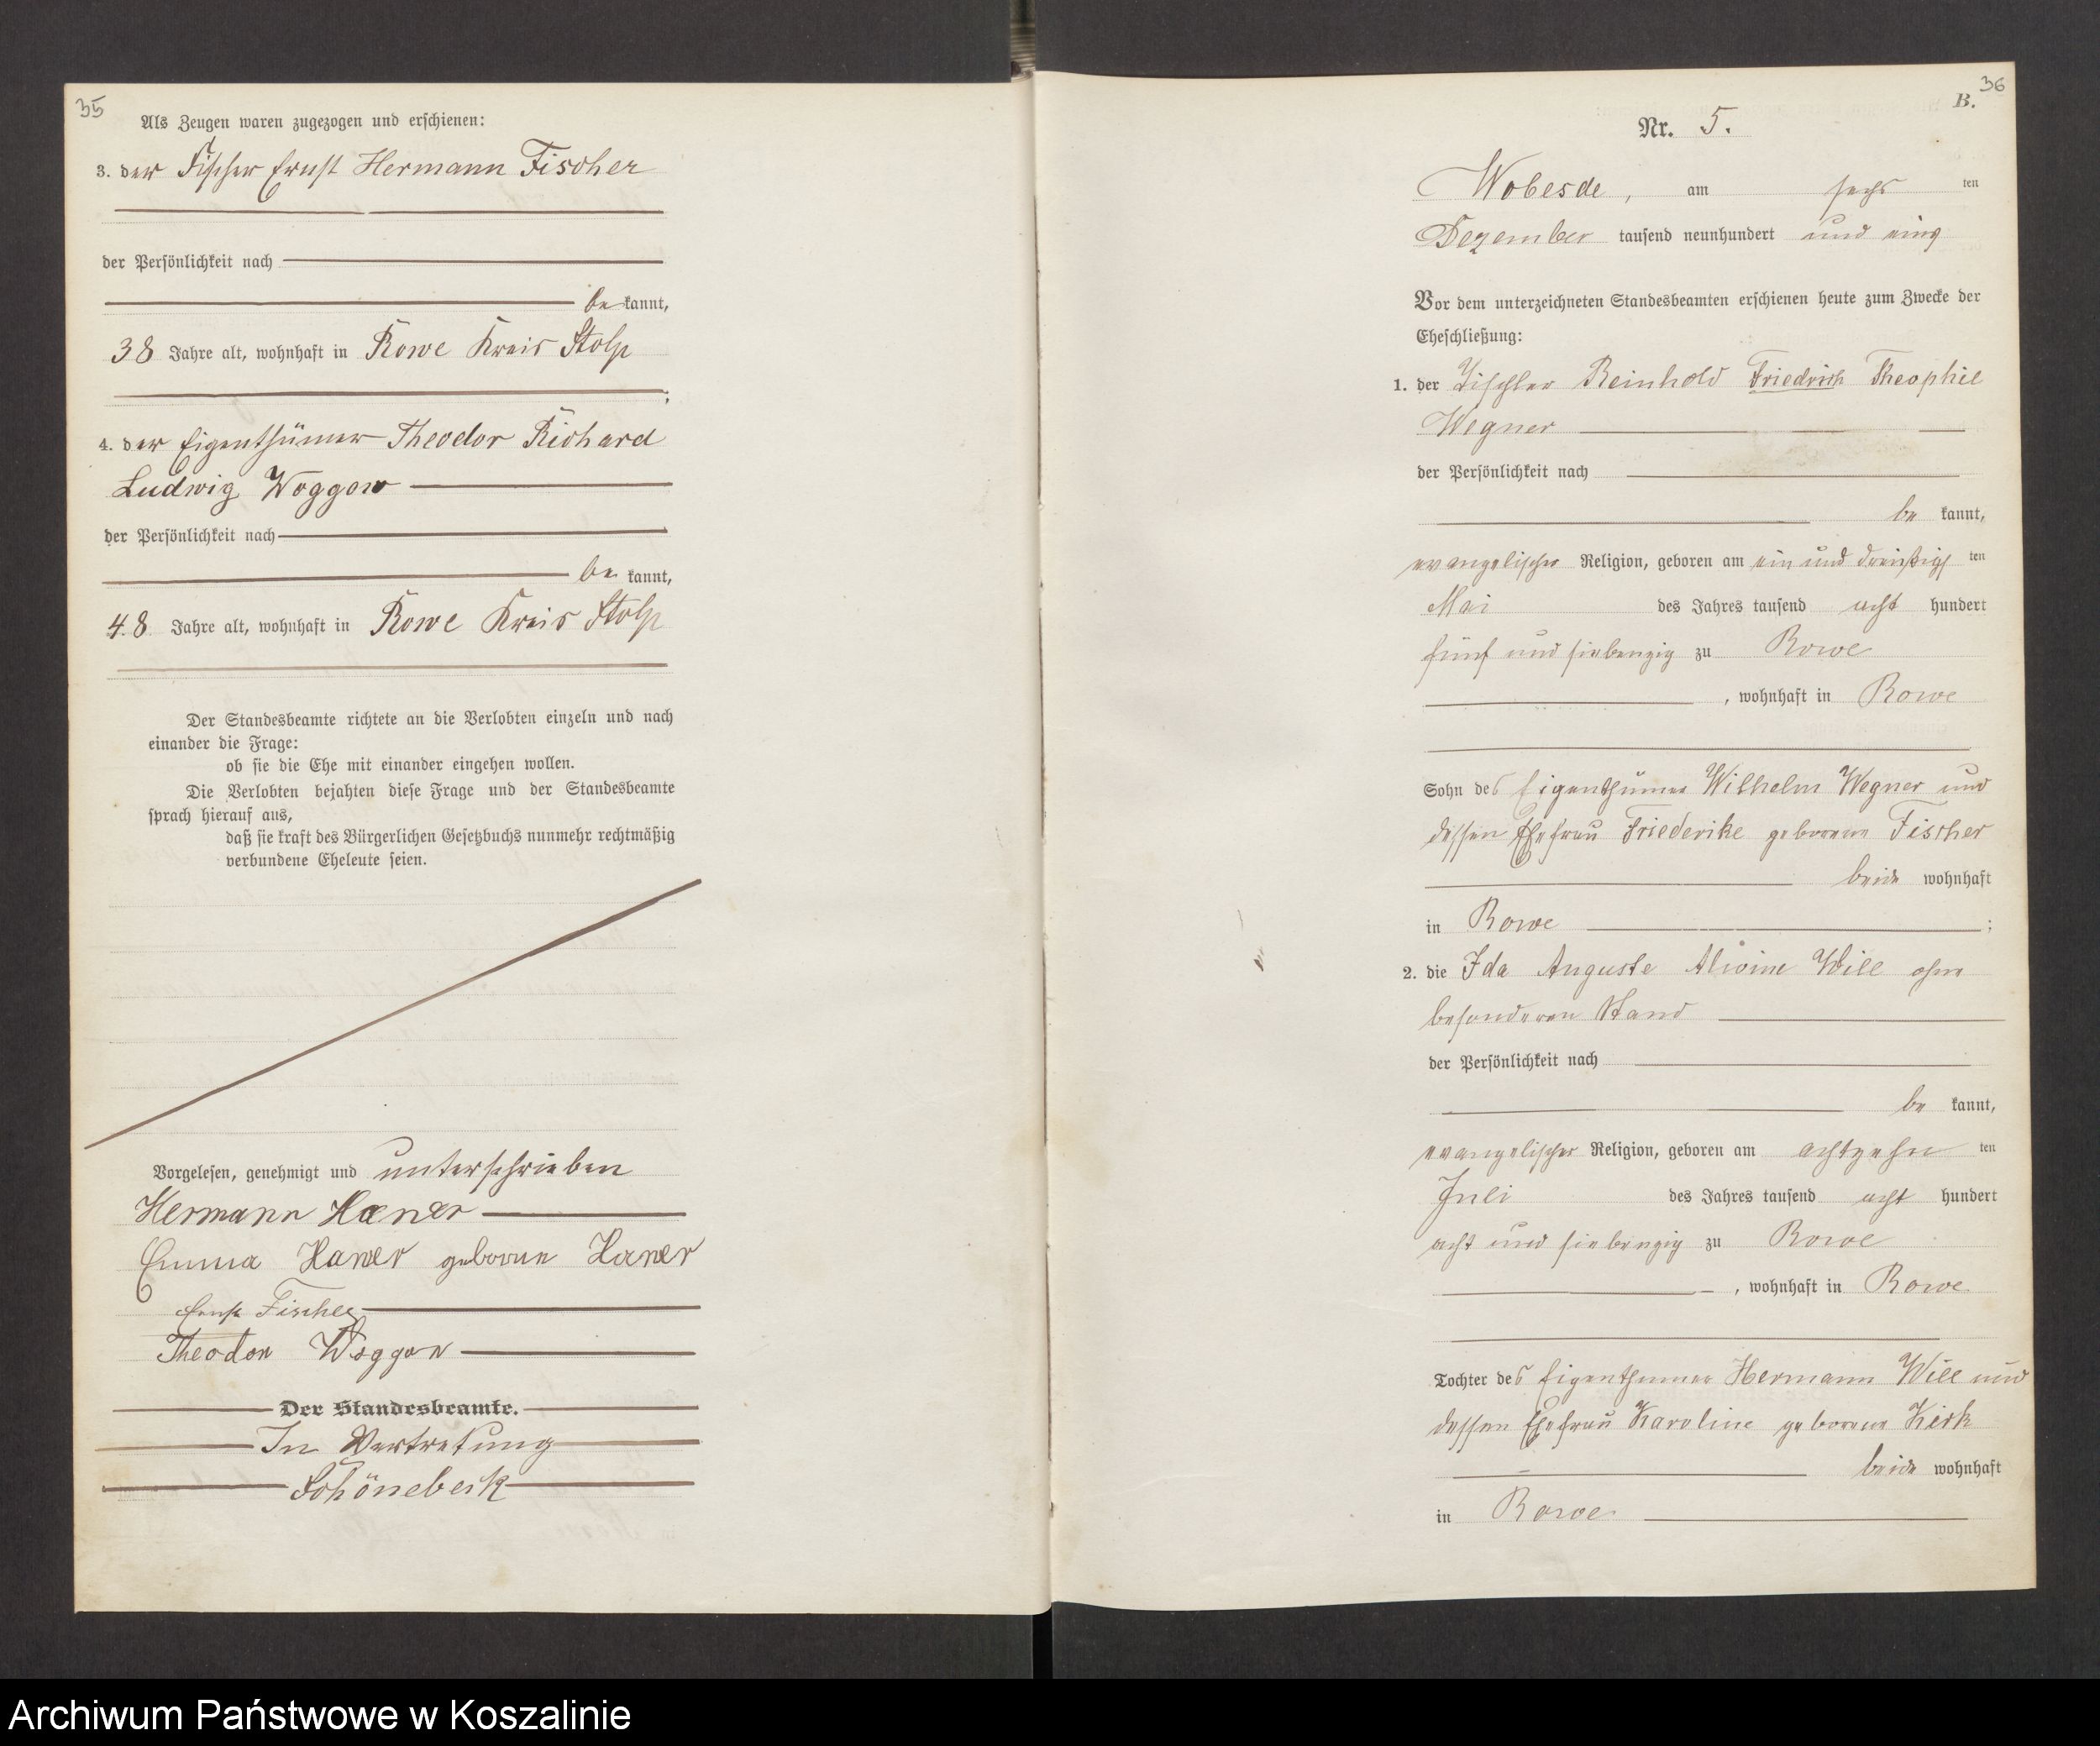 35
Als Zeugen waren zugezogen und erschienen:
3. der Fischer Ernst Hermann Fischer
der Persönlichkeit nach
be kannt,
38 Jahre alt, wohnhaft in Rowe Kreis Stolp
;
4. der Eigenthümer Theodor Richard
Ludwig Woggow
der Persönlichkeit nach
be kannt,
48 Jahre alt, wohnhaft in Rowe Kreis Stolp
Der Standesbeamte richtete an die Verlobten einzeln und nach
einander die Frage:
ob sie die Ehe mit einander eingehen wollen.
Die Verlobten bejahten diese Frage und der Standesbeamte
sprach hierauf aus,
daß sie kraft des Bürgerlichen Gesetzbuchs nunmehr rechtmäßig
verbundene Eheleute seien.
Vorgelesen, genehmigt und unterschrieben
Hermann
Emma geborene
Ernst Fischer
Theodor Woggon
Der Standesbeamte.
In Vertretung
Schönebeck
36
B.
Nr. 5.
Wobesde, am sechs ten
Dezember tausend neunhundert und eins
Vor dem unterzeichneten Standesbeamten erschienen heute zum Zwecke der
Eheschließung:
1. der Tischler Reinhold Friedrich Theophil
Wegner
der Persönlichkeit nach
be kannt,
evangelischer Religion, geboren am ein und dreißigs ten
Mai des Jahres tausend acht hundert
fünf und siebenzig zu Rowe
, wohnhaft in Rowe
Sohn des Eigenthümer Wilhelm Wegner und
dessen Ehefrau Friederike geborene Fischer
beide wohnhaft
in Rowe ;
2. die Ida Auguste Alwine Will ohne
besonderen Stand
der Persönlichkeit nach
be kannt,
evangelischer Religion, geboren am achtzehn ten
Juli des Jahres tausend acht hundert
acht und siebenzig zu Rowe
, wohnhaft in Rowe
Tochter des Eigenthümer Hermann Will und
dessen Ehefrau Karoline geborene Kirk
beide wohnhaft
in Rowe
Archiwum Państwowe w Koszalinie